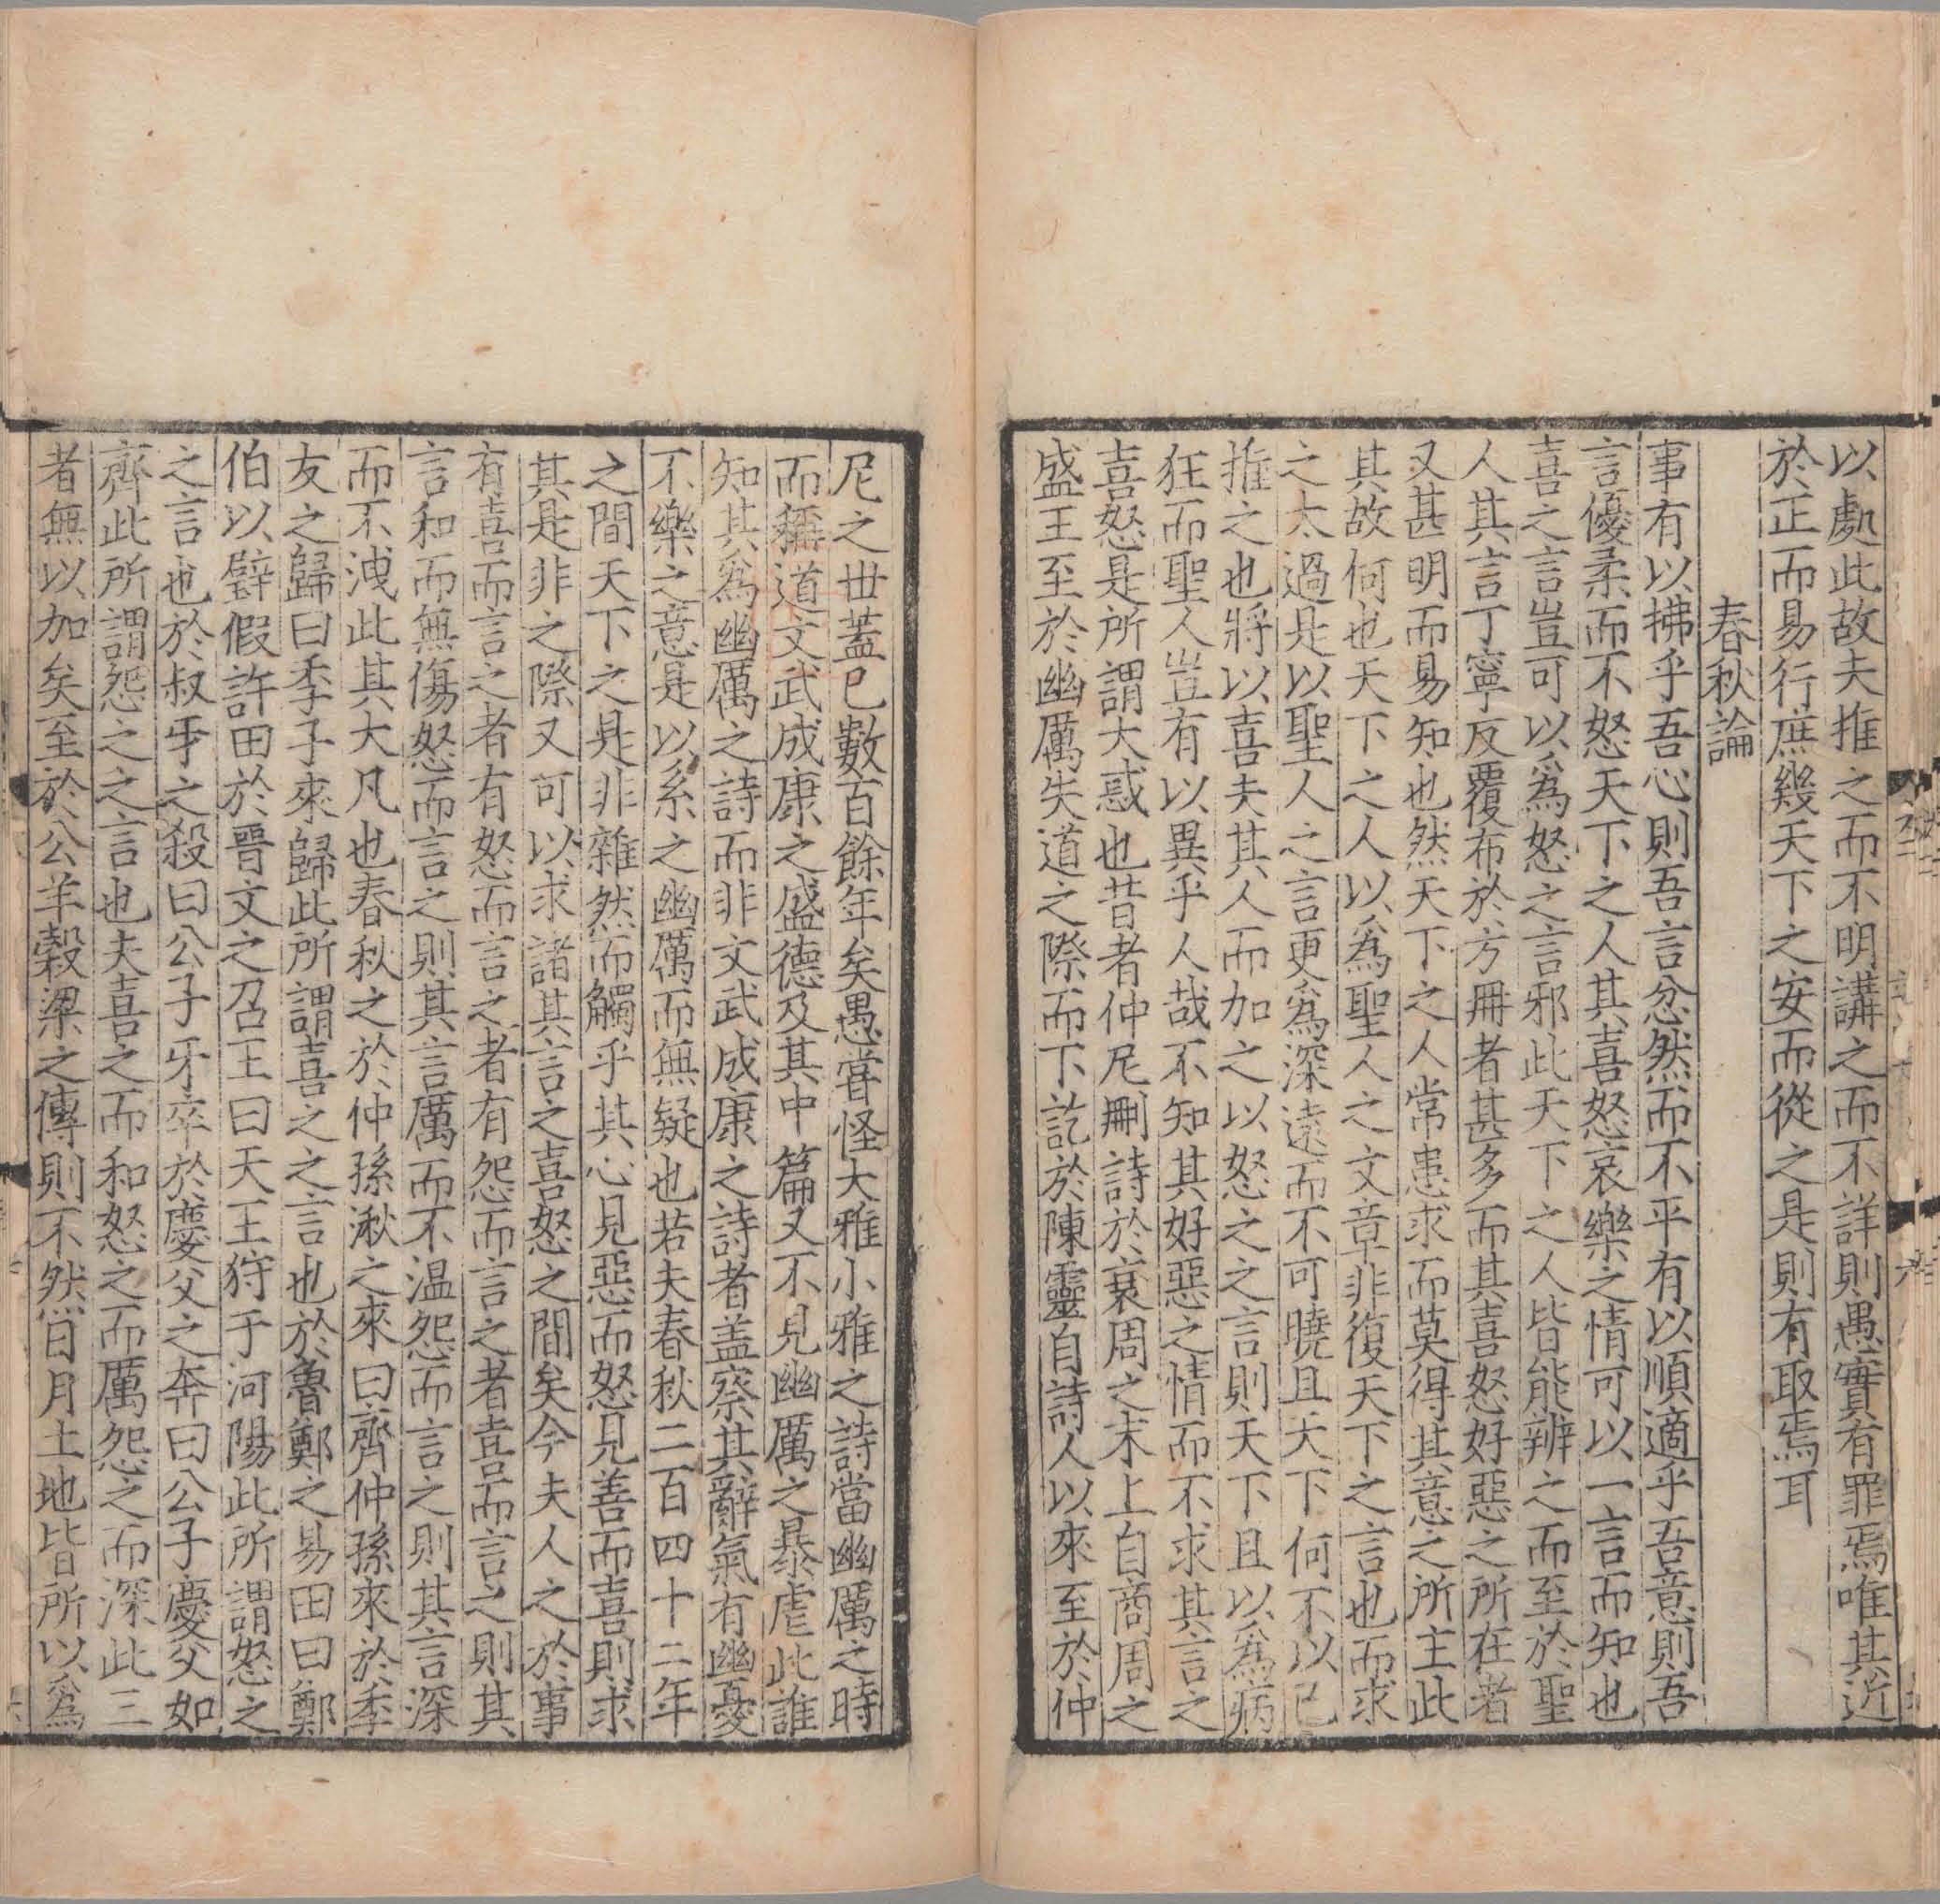 以處此故夫推之而不明講之而不詳則愚實有罪焉唯其近
於正而易行庶幾天下之安而從之是則有取焉耳
春秋論
事有以拂乎吾心則吾言忿然而不平有以順適乎吾意則吾
言優柔而不怒天下之人其喜怒哀樂之情可以一言而知也
喜之言豈可以爲怒之言邪此天下之人皆能辨之而至於聖
人其言丁寧反覆布於方冊者甚多而其喜怒好惡之所在者
又甚明而易知也然天下之人常患求而莫得其意之所主此
其故何也天下之人以爲聖人之文章非復天下之言也而求
之太過是以聖人之言更爲深遠而不可曉且天下何不以己
推之也將以喜夫其人而加之以怒之之言則天下且以爲病
狂而聖人豈有以異乎人哉不知其好惡之情而不求其言之
喜怒是所謂大惑也昔者仲尼刪詩於衰周之末上自商周之
盛王至於幽厲失道之際而下訖於陳靈自詩人以來至於仲
尼之世蓋已數百餘年矣愚嘗怪大雅小雅之詩當幽厲之時
而稱道文武成康之盛德及其中篇又不見幽厲之暴虐此誰
知其爲幽厲之詩而非文武成康之詩者盖察其辭氣有幽憂
不樂之意是以系之幽厲而無疑也若夫春秋二百四十二年
之間天下之是非雜然而觸乎其心見惡而怒見善而喜則求
其是非之際又可以求諸其言之喜怒之間矣今夫人之於事
有喜而言之者有怒而言之者有怨而言之者喜而言之則其
言和而無傷怒而言之則其言厲而不温怨而言之則其言深
而不洩此其大凡也春秋之於仲孫湫之來曰齊仲孫來於季
友之歸曰季子來歸此所謂喜之之言也於魯鄭之易田曰鄭
伯以璧假許田於晉文之召王曰天王狩于河陽此所謂怒之
之言也於叔牙之殺曰公子牙卒於慶父之奔曰公子慶父如
齊此所謂怨之之言也夫喜之而和怒之而厲怨之而深此三
者無以加矣至於公羊穀梁之傳則不然日月土地皆所以爲